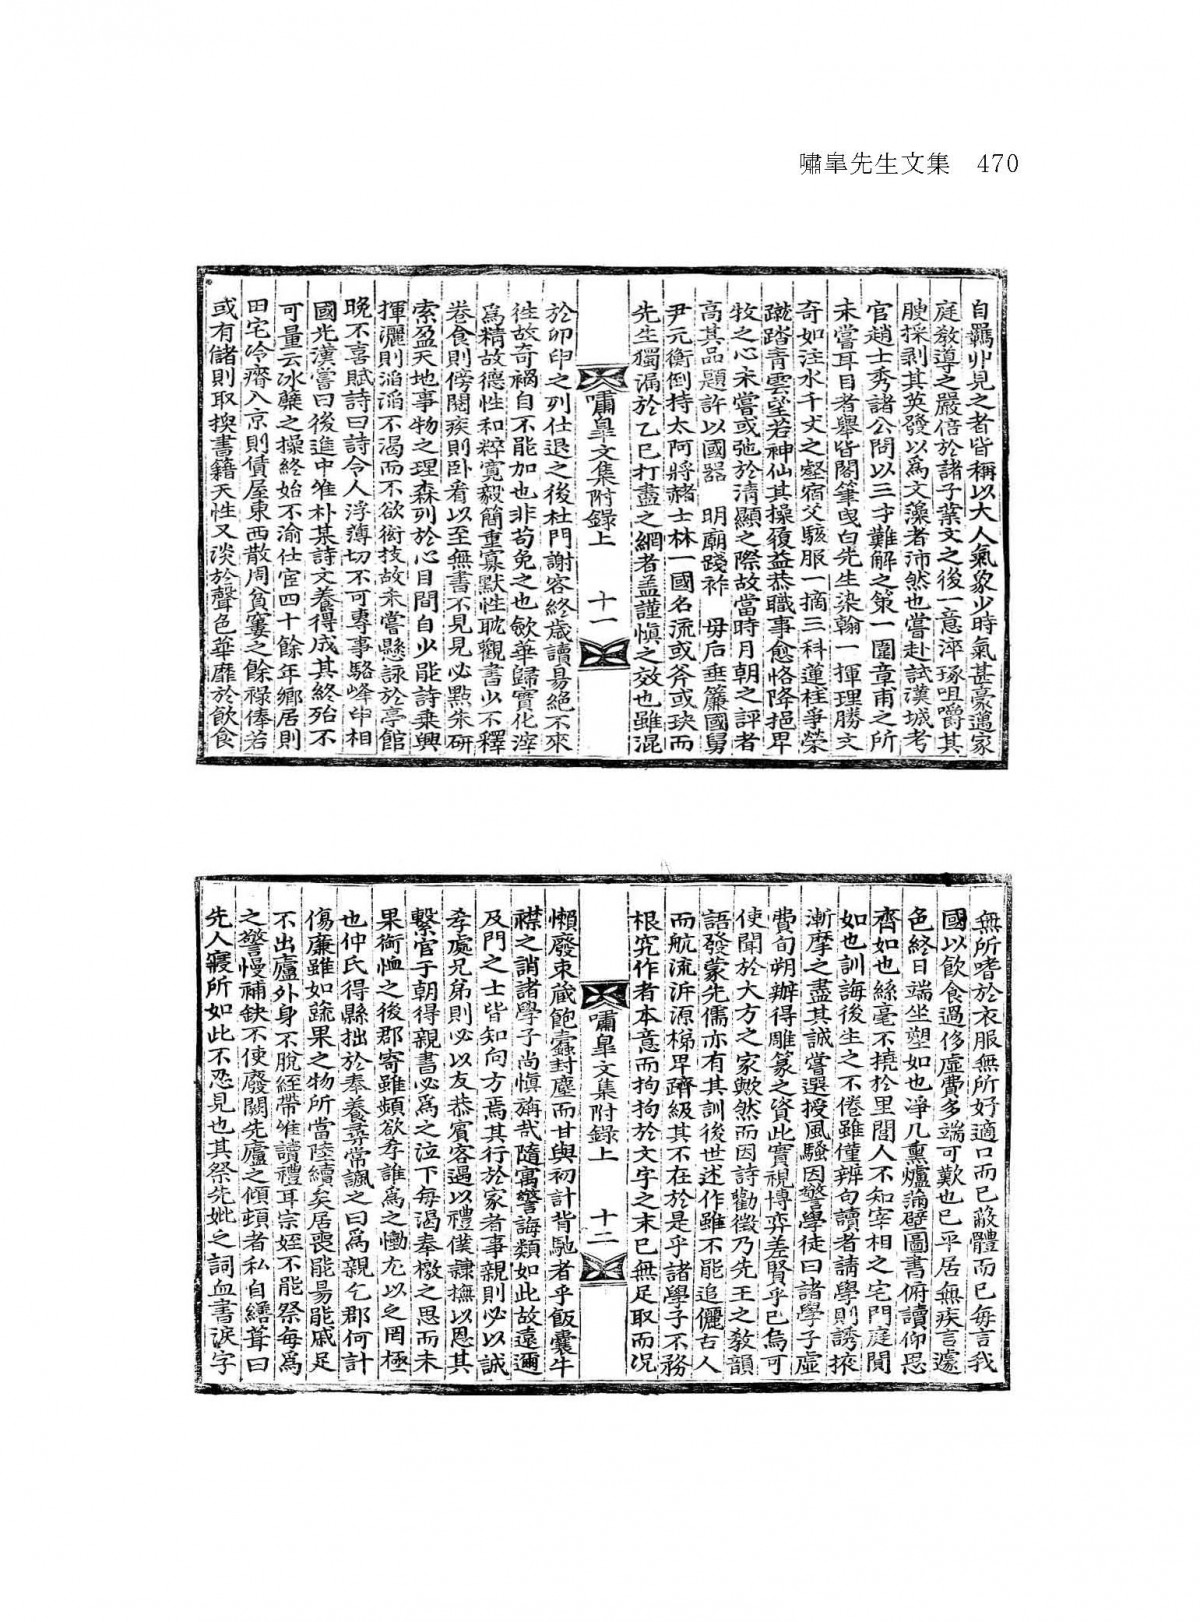 嘯皐先生文集 470
自羈丱見之者皆稱以大人氣象少時氣甚豪邁家
庭敎導之嚴倍於諸子業文之後一意淬琢咀嚼其
腴採剥其英發以爲文藻者沛然也嘗赴試漢城考
官趙士秀諸公問以三才難解之策一圍章甫之所
未嘗耳目者擧皆閣筆曳白先生染翰一揮理勝文
奇如注水千丈之壑宿父駭服一摘三科蓮柱爭榮
蹴踏靑雲望若神仙其操履益恭職事愈恪降挹卑
牧之心未嘗或弛於淸顯之際故當時月朝之評者
高其品題許以國器 明廟踐祚 毋后垂簾國舅
尹元衡倒持太阿將赭士林一國名流或斧或玦而
先生獨漏於乙巳打盡之網者盖謹愼之效也雖混
嘯皐文集附錄上 十一
於卯申之列仕退之後杜門謝客終歲讀易絶不來
徃故奇禍自不能加也非苟免之也斂華歸實化滓
爲精故德性和粹寬毅簡重寡默性耽觀書少不釋
卷食則傍閱疾則卧看以至無書不見見必點朱硏
索盈天地事物之理森列於心目間自少能詩乘興
揮灑則滔滔不渴而不欲衒技故未嘗懸詠於亭館
晚不喜賦詩曰詩令人浮薄切不可專事駱峰申相
國光漢嘗曰後進中惟朴某詩文養得成其終殆不
可量云冰蘗之操終始不渝仕宦四十餘年鄕居則
田宅冷瘠入京則賃屋東西散周貧窶之餘祿俸若
或有儲則取換書籍天性又淡於聲色華靡於飮食
無所嗜於衣服無所好適口而已蔽體而已每言我
國以飮食過侈虛費多端可歎也已平居無疾言遽
色終日端坐塑如也淨几熏爐滿壁圖書俯讀仰思
齊如也絲毫不撓於里閭人不知宰相之宅門庭閴
如也訓誨後生之不倦雖僅辨句讀者請學則誘掖
漸摩之盡其誠嘗選授風騷因警學徒曰諸學子虛
費旬朔辦得雕篆之資此實視博弈差賢乎已烏可
使聞於大方之家歟然而因詩勸徵乃先王之敎韻
語發蒙先儒亦有其訓後世述作雖不能追儷古人
而航流泝源梯卑躋級其不在於是乎諸學子不務
根究作者本意而拘拘於文字之末已無足取而况
嘯皐文集附錄上 十二
懶廢束蔵飽蠹封塵而甘與初計背馳者乎飯囊牛
襟之誚諸學子尙愼旃哉隨寓警誨類如此故遠邇
及門之士皆知向方焉其行於家者事親則必以誠
孝處兄弟則必以友恭賓客遇以禮僕隷撫以恩其
繫官于朝得親書必爲之泣下每渴奉檄之思而未
果銜恤之後郡寄雖頻欲孝誰爲之慟尤以之罔極
也仲氏得縣拙於奉養尋常諷之曰爲親乞郡何計
傷廉雖如蔬果之物所當陸續矣居喪能易能戚足
不出廬外身不脫絰帶惟讀禮耳宗姪不能祭每爲
之警慢補缺不使廢闕先廬之傾頓者私自繕葺曰
先人寢所如此不忍見也其祭先妣之詞血書淚字